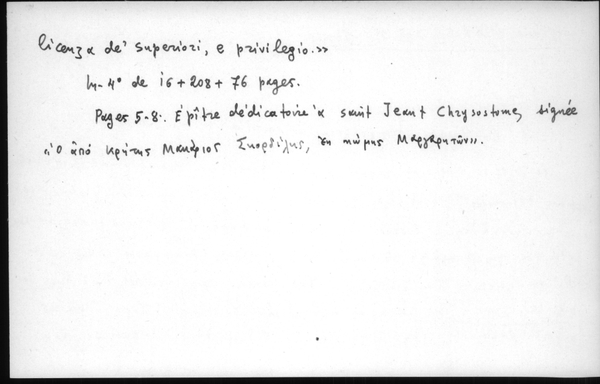 licenza de' superiori, e privilegio.»
In-4° de 16 + 208 + 76 pages.
Pages 5-8: Épître dédicatoire à saint Jean Chrysostome, signée
«ὁ ἀπό Κρήτης Μακάριος Σκορδίλης, ἐκ κώμης Μαργαρητῶν».